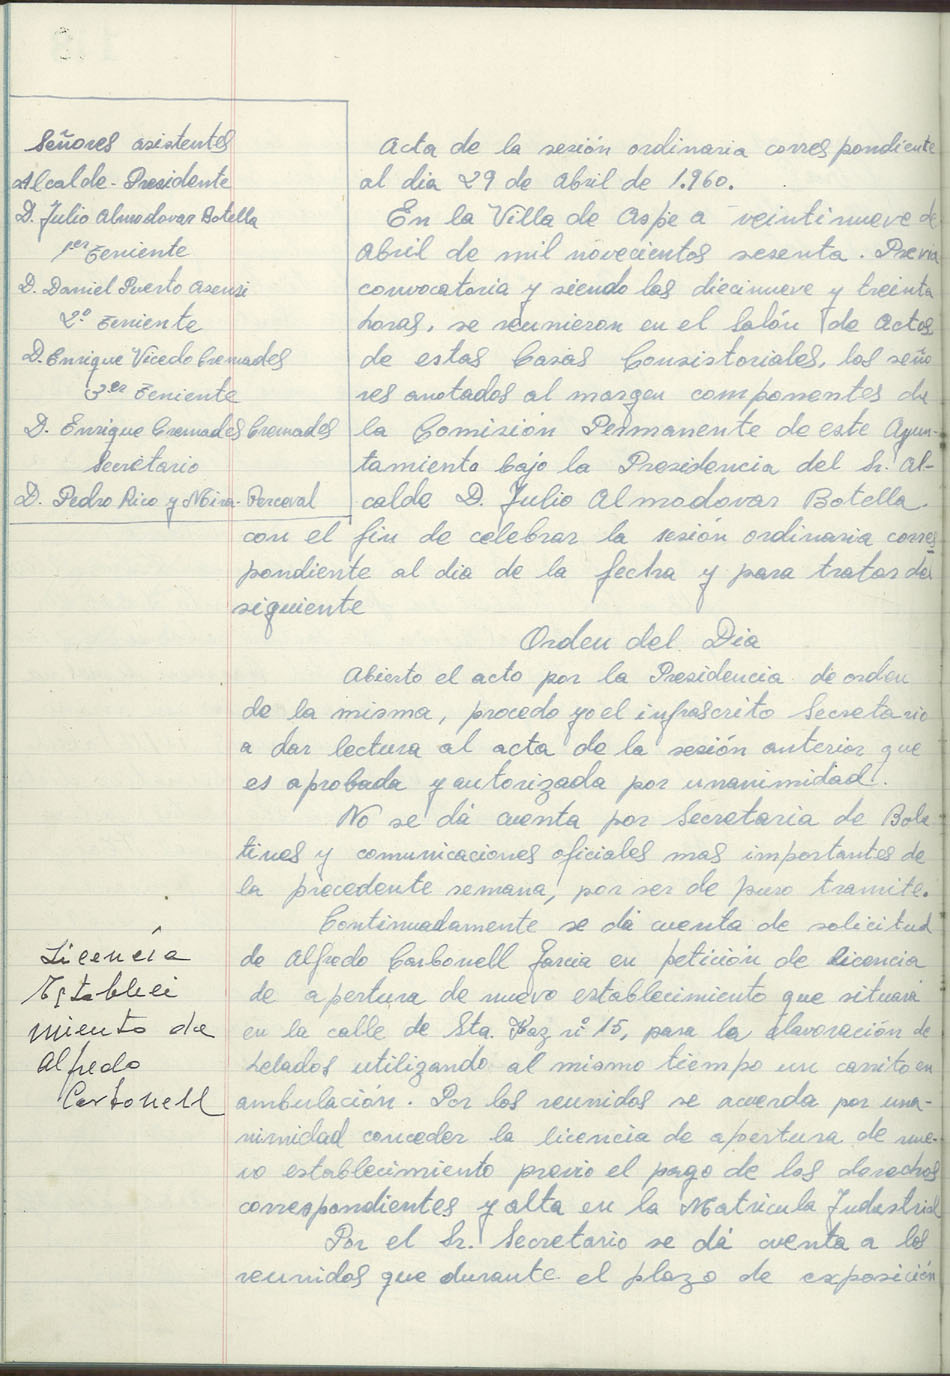 Señores asistentes
Alcalde-Presidente
D. Julio Almodovar Botella
1er Teniente
D. Daniel Puerto Asensi
2º Teniente
D. Enrique Vicedo Cremades
3er Teniente
D. Enrique Cremades Cremades
Secretario
D. Pedro Rico y Mira-Perceval
Acta de la sesión ordinaria correspondiente
al dia 29 de Abril de 1.960.
En la Villa de Aspe a veintinueve de
Abril de mil novecientos sesenta. Previa
convocatoria y siendo las diecinueve y treinta
horas, se reunieron en el Salón de Actos
de estas Casas Consistoriales, los seño
res anotados al margen componentes de
la Comisión Permanente de este Ayun-
tamiento bajo la Presidencia del Sr. Al-
calde D. Julio Almodovar Botella.
con el fin de celebrar la sesión ordinaria corres
pondiente al dia de la fecha y para tratar del
siguiente
Orden del Dia
Abierto el acto por la Presidencia de orden
de la misma, procedo yo el infrascrito Secretario
a dar lectura al acta de la sesión anterior que
es aprobada y autorizada por unanimidad.
No se dá cuenta por Secretaria de Bole
tines y comunicaciones oficiales mas importantes de
la precedente semana, por ser de puro tramite.
Continuadamente se dá cuenta de solicitud
de Alfredo Carbonell Garcia en petición de licencia
de apertura de nuevo establecimiento que situará
en la calle de Sta. Faz nº 15, para la elavoración de
helados utilizando al mismo tiempo un carrito en
ambulación. Por los reunidos se acuerda por una-
nimidad conceder la licencia de apertura de nue-
vo establecimiento previo el pago de los derechos
correspondientes y alta en la Matricula Industrial
Por el Sr. Secretario se dá cuenta a los
reunidos que durante el plazo de exposición
Licencia
Establei
miento de
Alfredo
Carbonell